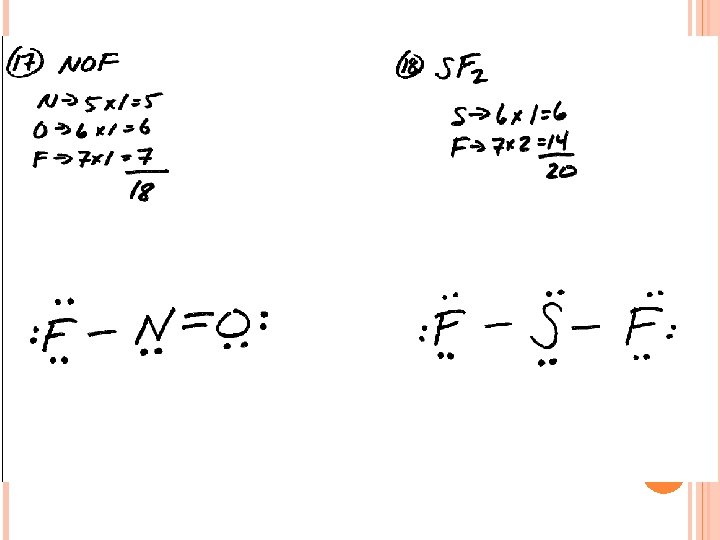 (17) NOF
N→5x1=5
O→6x1=6
F→7x1=7
18
:F–N=O:
(18) SF2
S→6x1=6
F→7x2=14
20
:F–S–F: